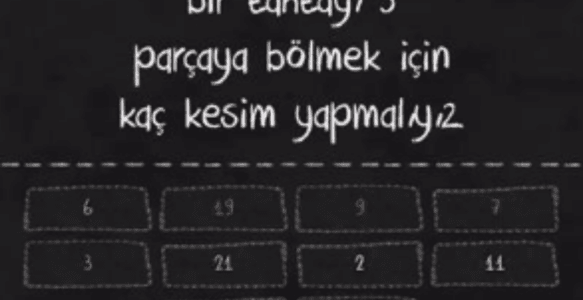 bir
parçaya bölmek için
kaç kesim yapmalıyız
6 19 9 7
3 21 2 11